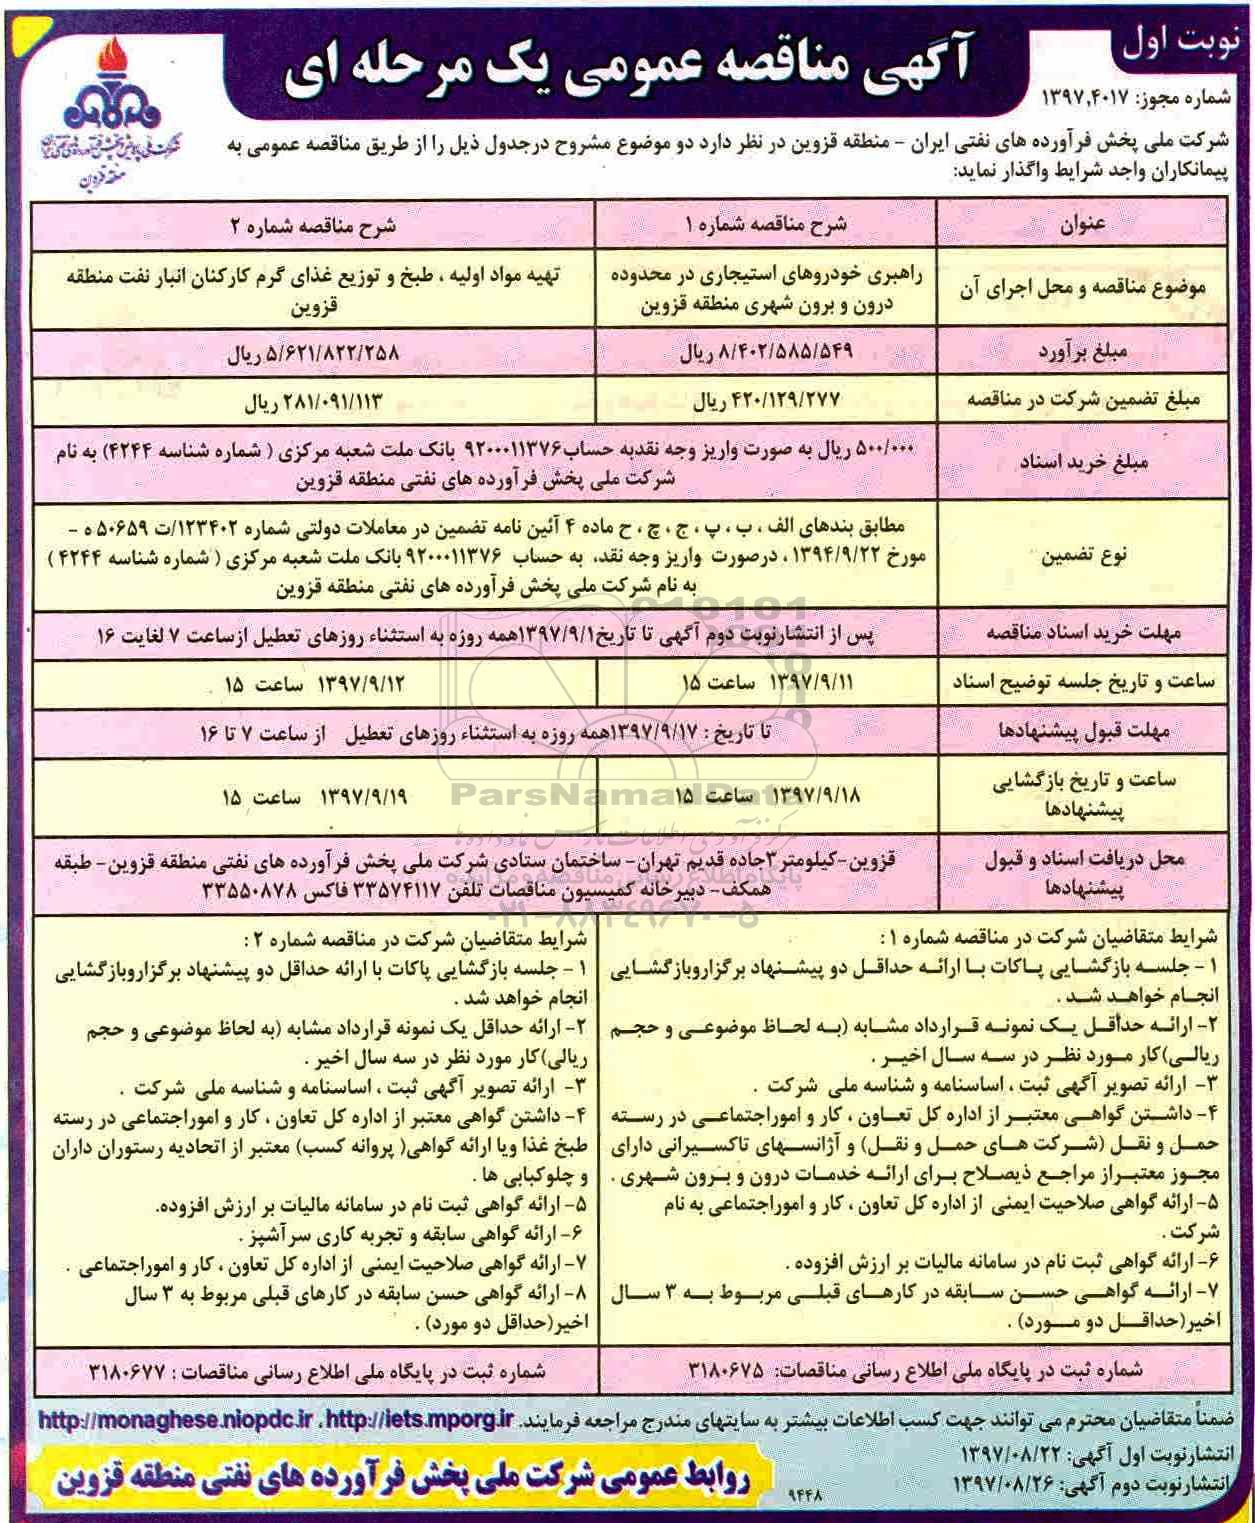 نوبت اول
آگهی مناقصه عمومی یک مرحله ای
شماره مجوز: ۱۳۹۷,۴۰۱۷
منطقه قزوین
شرکت ملی پخش فرآورده های نفتی ایران - منطقه قزوین در نظر دارد دو موضوع مشروح درجدول ذیل را از طریق مناقصه عمومی به
پیمانکاران واجد شرایط واگذار نماید:
عنوان
شرح مناقصه شماره ۱
شرح مناقصه شماره ۲
موضوع مناقصه و محل اجرای آن
راهبری خودروهای استیجاری در محدوده
درون و برون شهری منطقه قزوین
تهیه مواد اولیه ، طبخ و توزیع غذای گرم کارکنان انبار نفت منطقه
قزوین
مبلغ برآورد
۸/۴۰۲/۵۸۵/۵۴۹ ریال
۵/۶۲۱/۸۲۲/۲۵۸ ریال
مبلغ تضمین شرکت در مناقصه
۴۲۰/۱۲۹/۲۷۷ ریال
۲۸۱/۰۹۱/۱۱۳ ریال
مبلغ خرید اسناد
۵۰۰/۰۰۰ ریال به صورت واریز وجه نقدبه حساب۹۲۰۰۰۱۱۳۷۶ بانک ملت شعبه مرکزی ( شماره شناسه ۴۲۴۴) به نام
شرکت ملی پخش فرآورده های نفتی منطقه قزوین
نوع تضمین
مطابق بندهای الف ، ب ، پ ، ج ، چ ، ح ماده ۴ آئین نامه تضمین در معاملات دولتی شماره ۱۲۳۴۰۲/ت ۵۰۶۵۹ ه -
مورخ ۱۳۹۴/۹/۲۲ ، درصورت واریز وجه نقد، به حساب ۹۲۰۰۰۱۱۳۷۶ بانک ملت شعبه مرکزی ( شماره شناسه ۴۲۴۴ )
به نام شرکت ملی پخش فرآورده های نفتی منطقه قزوین
مهلت خرید اسناد مناقصه
پس از انتشارنوبت دوم آگهی تا تاریخ۱۳۹۷/۹/۱همه روزه به استثناء روزهای تعطیل ازساعت ۷ لغایت ۱۶
ساعت و تاریخ جلسه توضیح اسناد
۱۳۹۷/۹/۱۱ ساعت ۱۵
۱۳۹۷/۹/۱۲ ساعت ۱۵
مهلت قبول پیشنهادها
تا تاریخ : ۱۳۹۷/۹/۱۷همه روزه به استثناء روزهای تعطیل از ساعت ۷ تا ۱۶
ساعت و تاریخ بازگشایی
پیشنهادها
۱۳۹۷/۹/۱۸ ساعت ۱۵
۱۳۹۷/۹/۱۹ ساعت ۱۵
ParsNamadData
محل دریافت اسناد و قبول
پیشنهادها
قزوین-کیلومتر۳جاده قدیم تهران- ساختمان ستادی شرکت ملی پخش فرآورده های نفتی منطقه قزوین- طبقه
همکف- دبیرخانه کمیسیون مناقصات تلفن ۳۳۵۷۴۱۱۷ فاکس ۳۳۵۵۰۸۷۸
پایگاه اطلاع رسانی مناقصه و مزایده
۰۲۱-۸۸۳۴۹۶۷۰-۵
شرایط متقاضیان شرکت در مناقصه شماره ۱:
۱ - جلسه بازگشایی پاکات با ارائه حداقل دو پیشنهاد برگزاروبازگشایی
انجام خواهد شد .
۲- ارائه حداقل یک نمونه قرارداد مشابه (به لحاظ موضوعی و حجم
ریالی)کار مورد نظر در سه سال اخیر .
۳- ارائه تصویر آگهی ثبت ، اساسنامه و شناسه ملی شرکت .
۴- داشتن گواهی معتبر از اداره کل تعاون ، کار و اموراجتماعی در رسته
حمل و نقل (شرکت های حمل و نقل) و آژانسهای تاکسیرانی دارای
مجوز معتبراز مراجع ذیصلاح برای ارائه خدمات درون و برون شهری .
۵- ارائه گواهی صلاحیت ایمنی از اداره کل تعاون ، کار و اموراجتماعی به نام
شرکت .
۶- ارائه گواهی ثبت نام در سامانه مالیات بر ارزش افزوده .
۷- ارائه گواهی حسن سابقه در کارهای قبلی مربوط به ۳ سال
اخیر(حداقل دو مورد) .
شرایط متقاضیان شرکت در مناقصه شماره ۲:
۱ - جلسه بازگشایی پاکات با ارائه حداقل دو پیشنهاد برگزاروبازگشایی
انجام خواهد شد .
۲- ارائه حداقل یک نمونه قرارداد مشابه (به لحاظ موضوعی و حجم
ریالی)کار مورد نظر در سه سال اخیر .
۳- ارائه تصویر آگهی ثبت ، اساسنامه و شناسه ملی شرکت .
۴- داشتن گواهی معتبر از اداره کل تعاون ، کار و اموراجتماعی در رسته
طبخ غذا ویا ارائه گواهی( پروانه کسب) معتبر از اتحادیه رستوران داران
و چلوکبابی ها .
۵- ارائه گواهی ثبت نام در سامانه مالیات بر ارزش افزوده.
۶- ارائه گواهی سابقه و تجربه کاری سرآشپز .
۷- ارائه گواهی صلاحیت ایمنی از اداره کل تعاون ، کار و اموراجتماعی .
۸- ارائه گواهی حسن سابقه در کارهای قبلی مربوط به ۳ سال
اخیر(حداقل دو مورد) .
شماره ثبت در پایگاه ملی اطلاع رسانی مناقصات: ۳۱۸۰۶۷۵
شماره ثبت در پایگاه ملی اطلاع رسانی مناقصات : ۳۱۸۰۶۷۷
ضمناً متقاضیان محترم می توانند جهت کسب اطلاعات بیشتر به سایتهای مندرج مراجعه فرمایند. http://monaghese.niopdc.ir ، http://iets.mporg.ir
انتشارنوبت اول آگهی: ۱۳۹۷/۰۸/۲۲
انتشارنوبت دوم آگهی: ۱۳۹۷/۰۸/۲۶
روابط عمومی شرکت ملی پخش فرآورده های نفتی منطقه قزوین
۹۴۴۸